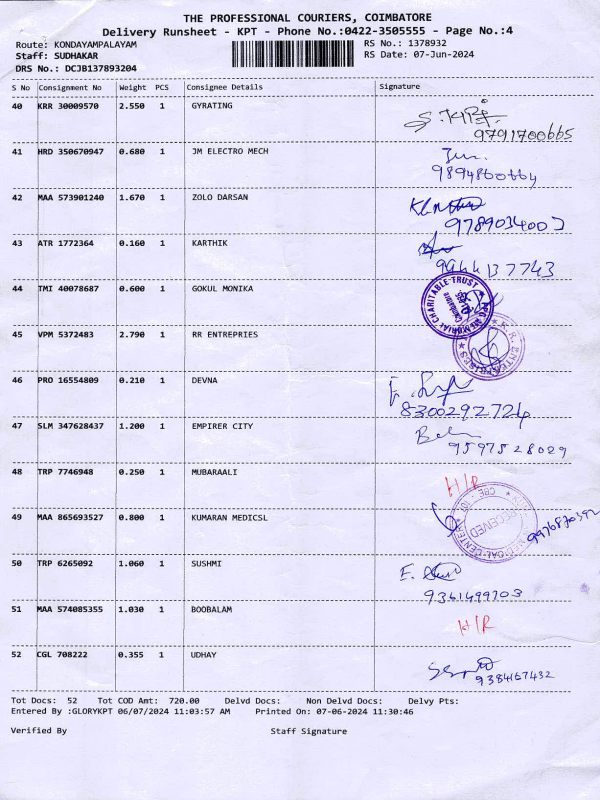 THE PROFESSIONAL COURIERS, COIMBATORE
Delivery Runsheet - KPT - Phone No.:0422-3505555 - Page No.:4
Route: KONDAYAMPALAYAM RS No.: 1378932
Staff: SUDHAKAR RS Date: 07-Jun-2024
DRS No.: DCJB137893204
S No Consignment No Weight PCS Consignee Details Signature
40 KRR 30009570 2.550 1 GYRATING
9791700665
41 HRD 350670947 0.680 1 JM ELECTRO MECH
9894860664
42 MAA 573901240 1.670 1 ZOLO DARSAN
9789034003
43 ATR 1772364 0.160 1 KARTHIK
9944137743
44 TMI 40078687 0.600 1 GOKUL MONIKA
MEMORIAL CHARITABLE TRUST
45 VPM 5372483 2.790 1 RR ENTREPRIES
R.R. ENTERPRISES
46 PRO 16554809 0.210 1 DEVNA
8300292724
47 SLM 347628437 1.200 1 EMPIRER CITY
9597528029
48 TRP 7746948 0.250 1 MUBARAALI
H/R
49 MAA 865693527 0.800 1 KUMARAN MEDICSL
RECEIVED
MEDICAL CENTER
9976870392
50 TRP 6265092 1.060 1 SUSHMI
9361499703
51 MAA 574085355 1.030 1 BOOBALAM
H/R
52 CGL 708222 0.355 1 UDHAY
9384167432
Tot Docs: 52 Tot COD Amt: 720.00 Delvd Docs: Non Delvd Docs: Delvy Pts:
Entered By :GLORYKPT 06/07/2024 11:03:57 AM Printed On: 07-06-2024 11:30:46
Verified By Staff Signature